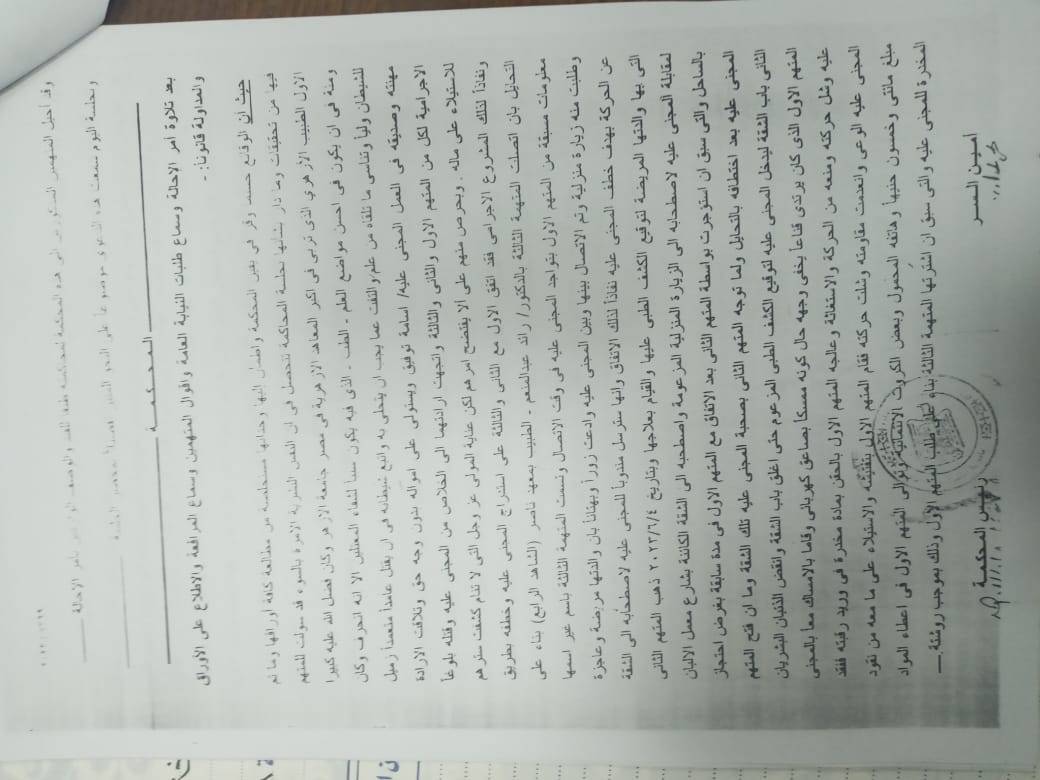 وقد أحيل المتهمين المذكورين إلى هذه المحكمة لمحاكمتهم طبقا للقيد والوصف الواردين بأمر الإحالة
وبجلسة اليوم سمعت هذه الدعوى
المحكمة
بعد تلاوة أمر الإحالة وسماع طلبات النيابة العامة وأقوال المتهمين وسماع المرافعة والاطلاع على الأوراق
والمداولة قانونا: -
حيث أن الوقائع حسبما وقر في يقين المحكمة واطمأن إليها وجدانها مستخلصة من مطالعة كافة أوراقها وما تم
فيها من تحقيقات وما دار بشأنها بجلسة المحاكمة تتحصل فى أن النفس البشرية الأمرة بالسوء قد سولت للمتهم
الأول الطبيب الأزهرى الذى تربى فى أكبر المعاهد الأزهرية فى مصر جامعة الأزهر وكان فضل الله عليه كبيرا
ومنة فى ان يكون فى احسن مواضع العلم - الطب - الذى فيه يكون سببا لشفاء المعتلين الا انه انحرف وكان
للشيطان ولياً وتناسى ما تلقاه من علم والتفت عما يجب ان يتحلى به واتبع شيطانه فى ان يقتل عامداً متعمداً زميل
مهنته وصديقه فى العمل المجنى عليه/ أسامة توفيق ويستولى على أمواله بدون وجه حق وتلاقت الإرادة
الاجرامية لكل من المتهم الأول والثانى والثالثة واتجهت ارادتهما الى الخلاص من المجنى عليه وقتله بلوغاً
للاستيلاء على ماله . وبحرص منهم على ألا يفتضح امرهم لكن عناية المولى عز وجل التى لا تنام كشفت سترهم
ونفاذاً لذلك المشروع الاجرامى فقد اتفق الأول مع الثانى والثالثة على استدراج المجنى عليه وخطفه بطريق
التحايل بان اتصلت المتهمة الثالثة بالدكتور/ رائد عبدالمنعم - الطبيب بمعهد ناصر (الشاهد الرابع) بناء على
معلومات مسبقة من المتهم الاول بتواجد المجنى عليه فى وقت الاتصال وتسمت المتهمة الثالثة باسم غير اسمها
وطلبت منه زيارة منزلية وتم الاتصال بينها وبين المجنى عليه وادعت زوراً وبهتاناً بان والدتها مريضة وعاجزة
عن الحركة بهدف خطف المجنى عليه نفاذاً لذلك الاتفاق وانها سترسل مندوباً للمجنى عليه لاصطحابه الى الشقة
التى بها والدتها المريضة لتوقيع الكشف الطبى عليها والقيام بعلاجها وبتاريخ ٢٠٢٣/٦/٤ ذهب المتهم الثانى
لمقابلة المجنى عليه لاصطحابه الى الزيارة المنزلية المزعومة واصطحبه الى الشقة الكائنة بشارع معمل الالبان
بالساحل والتى سبق ان استوجرت بواسطة المتهم الثانى بعد الاتفاق مع المتهم الأول فى مدة سابقة بغرض احتجاز
المجنى عليه بعد اختطافه بالتحايل ولما توجه المتهم الثانى بصحبة المجنى عليه تلك الشقة وما ان فتح المتهم
الثانى باب الشقة ليدخل المجنى عليه لتوقيع الكشف الطبى المزعوم حتى اغلق باب الشقة وانقض الذئبان البشريان
المتهم الأول الذى كان يرتدى قناعاً يخفى وجهه حال كونه ممسكاً بصاعق كهربائى وقاما بالامساك معاً بالمجنى
عليه وشل حركته ومنعه من الحركة والاستغاثة وعالجه المتهم الأول بالحقن بمادة مخدرة فى وريد رقبته ففقد
المجنى عليه الوعى وانعدمت مقاومته وشلت حركته فقام المتهم الأول بتفتيشه والاستيلاء على ما معه من نقود
مبلغ مائتى وخمسون جنيهاً وهاتفه المحمول وبعض الكروت الائتمانية وتوالى المتهم الأول فى اعطاء المواد
المخدرة للمجنى عليه والتى سبق ان اشترتها المتهمة الثالثة بناء على طلب المتهم الأول وذلك بموجب روشتة
امين السر
رئيس المحكمة